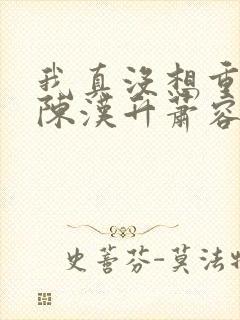 我真没想重
陈漢升蕭容
史蓍芬-莫法特